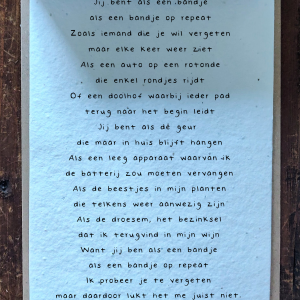 Jij bent als een bandje
als een bandje op repeat
Zoals iemand die je wil vergeten
maar elke keer weer ziet
Als een auto op een rotonde
die enkel rondjes rijdt
Of een doolhof waarbij ieder pad
terug naar het begin leidt
Jij bent als de geur
die maar in huis blijft hangen
Als een leeg apparaat waarvan ik
de batterij zou moeten vervangen
Als de beestjes in mijn planten
die telkens weer aanwezig zijn
Als de droesem, het bezinksel
dat ik terugvind in mijn wijn
Want jij ben als een bandje
als een bandje op repeat
Ik probeer je te vergeten
maar daardoor lukt het me juist niet.